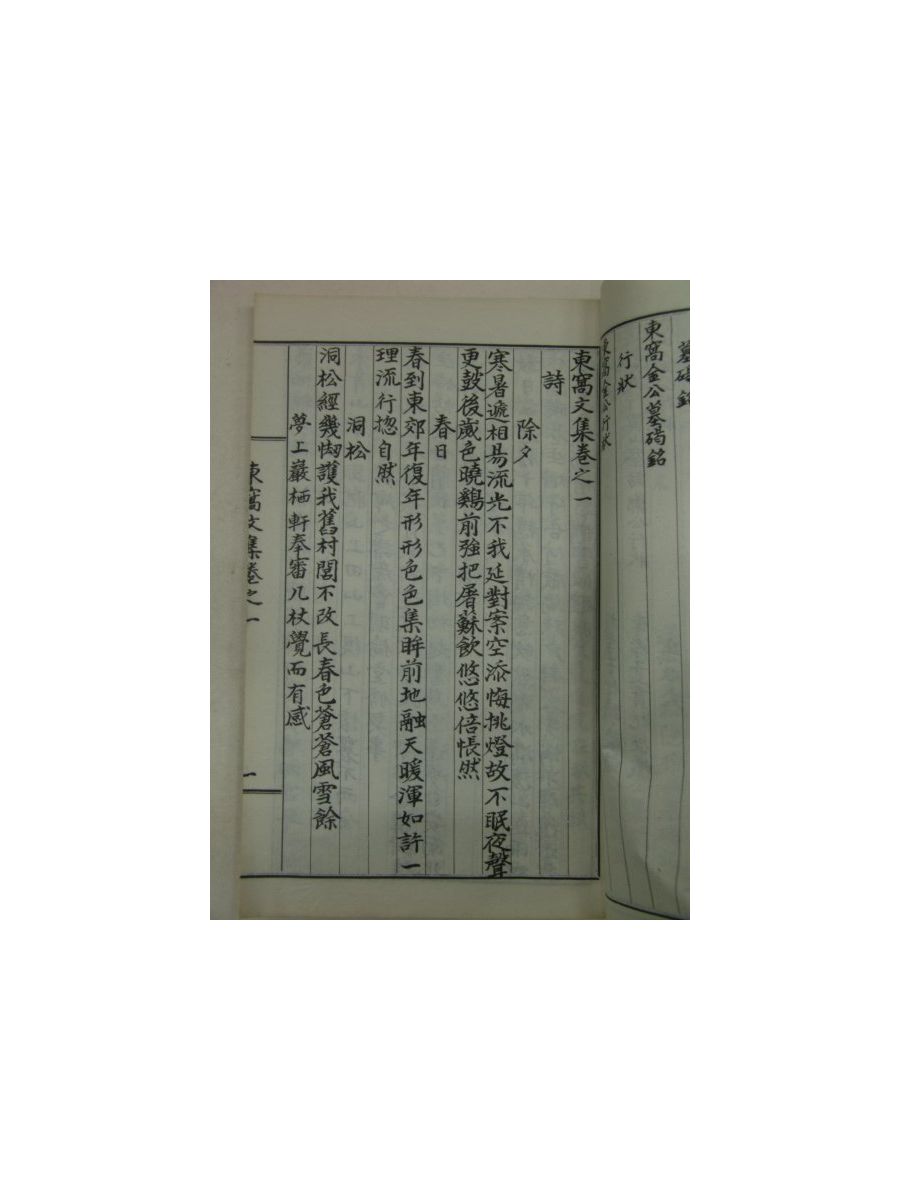 墓碣銘
東窩金公墓碣銘
行狀
東窩金公行狀
東窩文集卷之一
詩
除夕
寒暑遞相易流光不我延對案空添悔挑燈故不眠夜聲
更鼓後歲色曉鷄前强把屠蘇飲悠悠倍悵然
春日
春到東郊年復年形形色色集眸前地融天暖渾如許一
理流行揔自然
洞松
洞松經幾刼護我舊村閭不改長春色蒼蒼風雪餘
夢上巖栖軒奉審几杖覺而有感
東窩文集卷之一
一